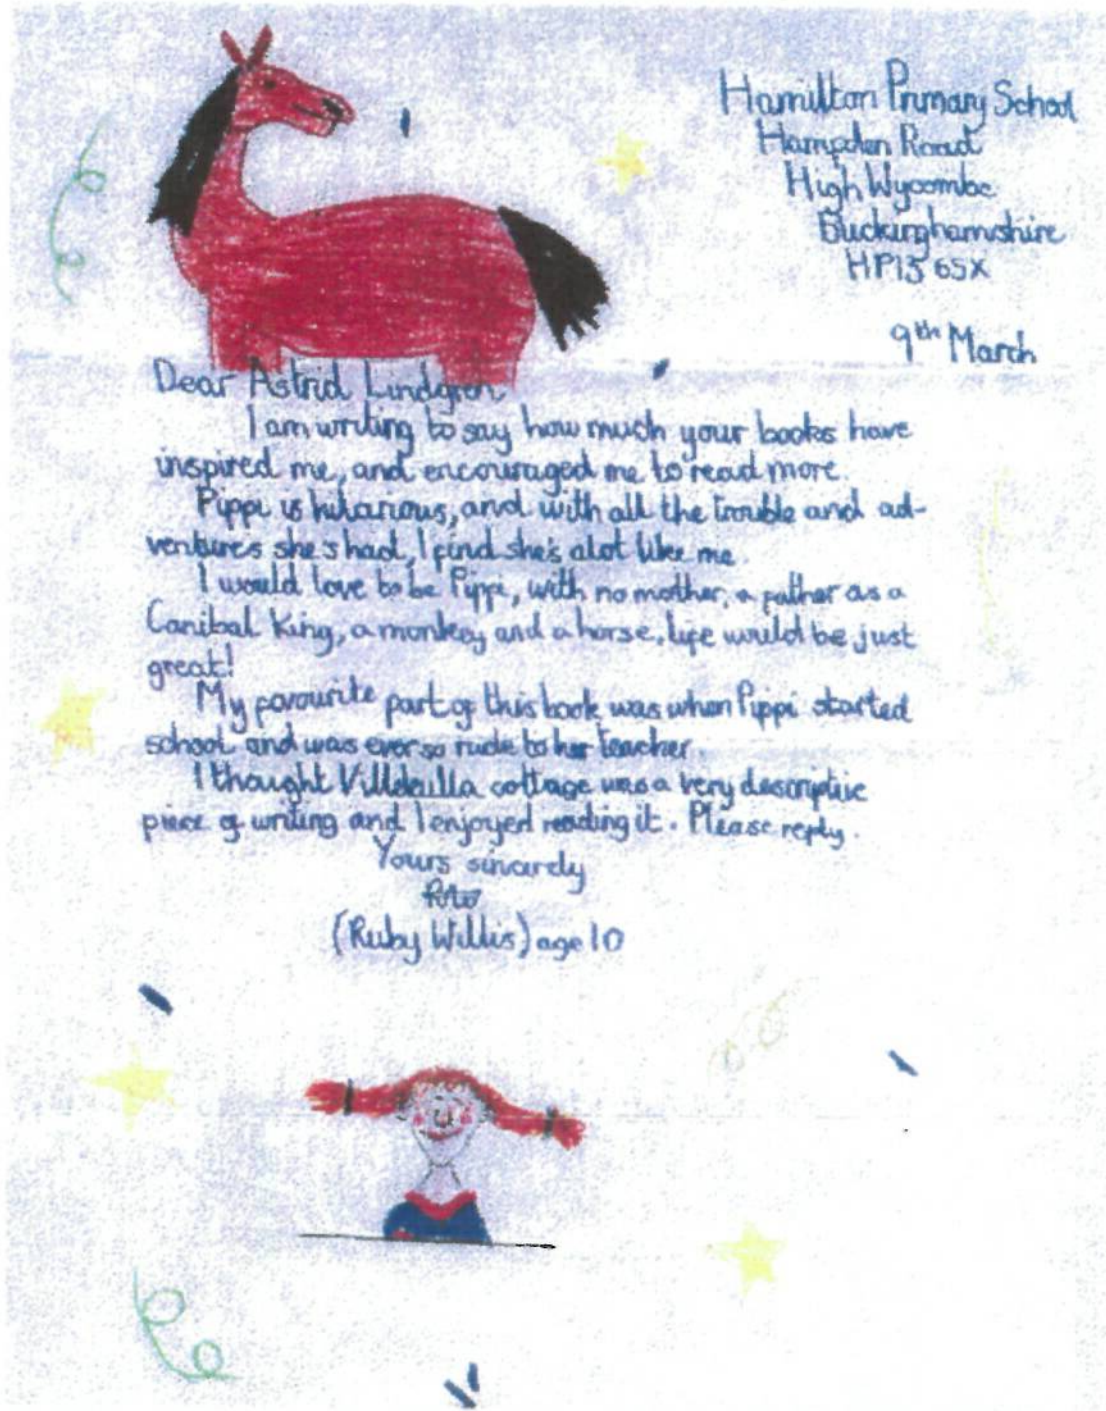 Hamilton Primary School
Hampden Road
High Wycombe
Buckinghamshire
HP13 6SX
9th March
Dear Astrid Lindgren
I am writing to say how much your books have
inspired me, and encouraged me to read more.
Pippi is hilarious, and with all the trouble and ad-
ventures she's had, I find she's alot like me.
I would love to be Pippi, with no mother, a father as a
Canibal King, a monkey and a horse, life would be just
great!
My favourite part of this book was when Pippi started
school and was ever so rude to her teacher.
I thought Villekulla cottage was a very descriptive
piece of writing and I enjoyed reading it. Please reply.
Yours sincerely
(Ruby Willis) age 10